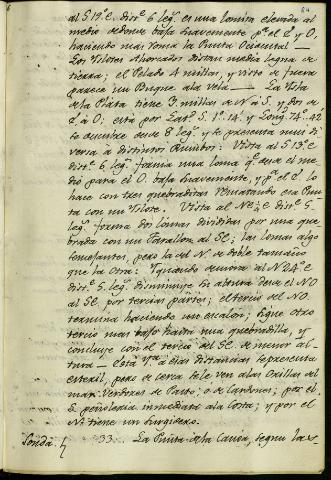 al S 19° E. dist.ª 6 leg.s es una lomita elevada al
medio de donde baja suavemente p.r el E y O,
haciendo mas roma la Punta Occidental —
Los Yslotes Ahorcados distan media legua de
tierra; el Pelado 4 millas, y visto de fuera
parece un Buque a la vela — La Ysla
de la Plata tiene 3 millas de N. á S. y dos de
E. á O: está por Lat.d S. 1°. 14' y Long.d 74°. 42'
se descubre desde 8 leg.s y se presenta mui di-
versa á distintos Rumbos: Vista al S 13° E
dist.ª 6 leg.s forma una loma q.e desde el me-
dio para el O. baja suavemente, y p.r el E. lo
hace con tres quebraditas rematando en Pun-
ta con un Yslote. Vista al NE¼E dist.ª 5
leg.s forma dos lomas divididas por una que-
brada con un Farallon al SE; las lomas algo
semejantes, pero la del N. de doble tamaño
que la otra: Y quando demora al N 24° E
dist.ª 5 leg.s disminuye su altura desde el NO
al SE. por tercias partes; el tercio del NO.
termina haciendo un escalon; sigue otro
tercio mas bajo hasta una quebradilla, y
concluye con el tercio del SE de menor al-
tura — Esta Ysla á estas distancias se presenta
esteril, pero de cerca se le ven a las Orillas del
mar Verdores de Pasto, ó de Cardones; por el
S. peñoleria inmediata a la Costa; y por el
N. tiene un surgidero.
Sonda. 33. La Punta de la Canoa, segun las